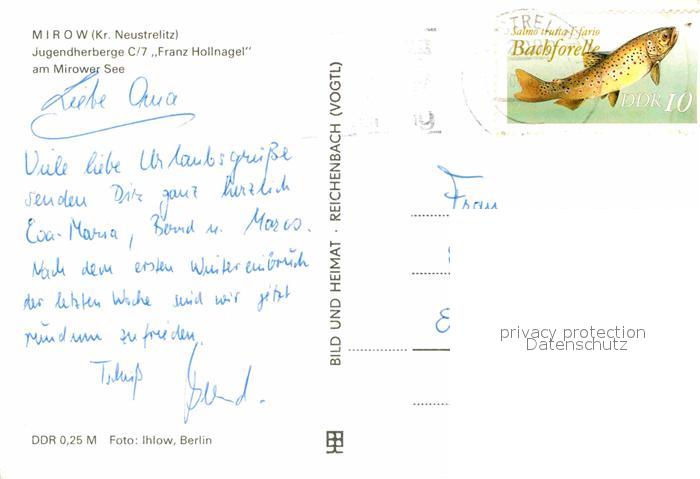 MIROW (Kr. Neustrelitz)
Jugendherberge C/7 „Franz Hollnagel"
am Mirower See
Liebe Oma
Viele liebe Urlaubsgrüße
senden Dir ganz herzlich
Eva-Maria, Bernd u. Marco.
Nach dem ersten Wintereinbruch
der letzten Woche sind wir jetzt
rundum zufrieden.
Tschüß
Bernd.
DDR 0,25 M Foto: Ihlow, Berlin
BILD UND HEIMAT · REICHENBACH (VOGTL)
STREL
Salmo trutta f. fario
Bachforelle
DDR 10
Frau
E
privacy protection
Datenschutz